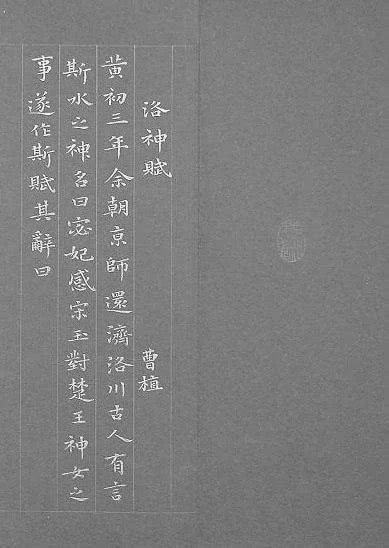 洛神賦
曹植
黃初三年余朝京師還濟洛川古人有言
斯水之神名曰宓妃感宋玉對楚王神女之
事遂作斯賦其辭曰